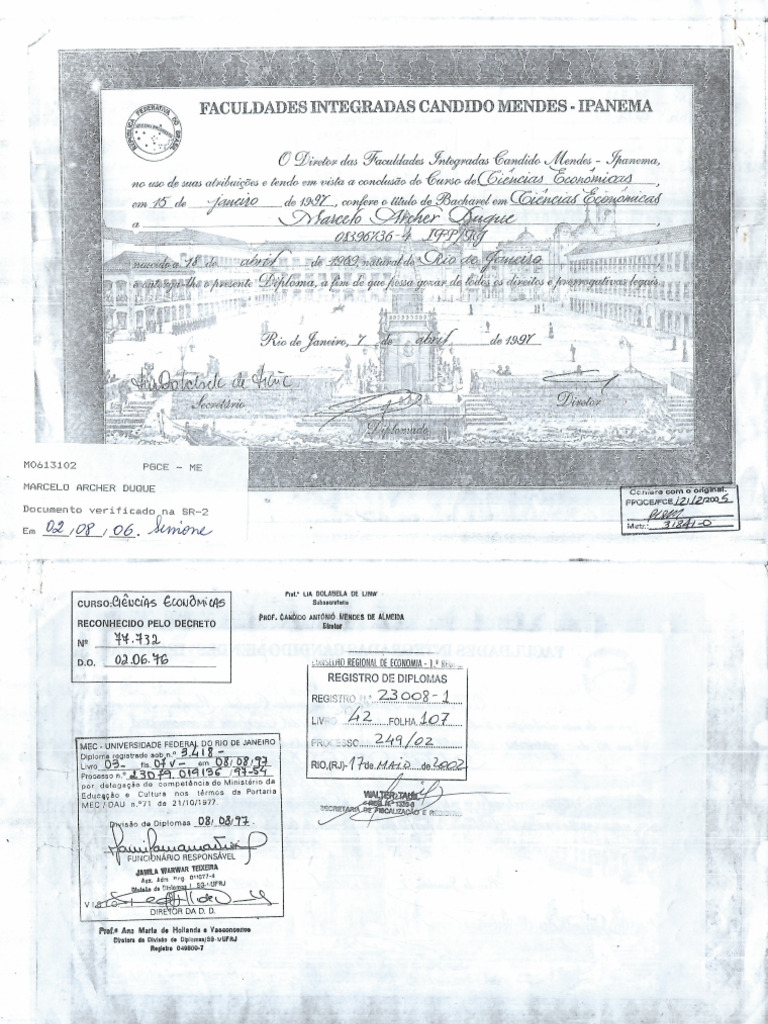 FACULDADES INTEGRADAS CANDIDO MENDES - IPANEMA
REPÚBLICA FEDERATIVA DO BRASIL
O Diretor das Faculdades Integradas Candido Mendes - Ipanema,
no uso de suas atribuições e tendo em vista a conclusão do Curso de Ciências Econômicas,
em 15 de janeiro de 1997, confere o título de Bacharel em Ciências Econômicas
a Marcelo Archer Duque
08396736-4 IFP/RJ
nascido a 18 de abril de 1969 natural de Rio de Janeiro
e outorga-lhe o presente Diploma, a fim de que possa gozar de todos os direitos e prerrogativas legais.
Rio de Janeiro, 7 de abril de 1997
Secretário
Diplomado
Diretor
M0613102 PGCE - ME
MARCELO ARCHER DUQUE
Documento verificado na SR-2
Em 02/08/06. Simone
Confere com o original.
PPGCE/FCE/21/2/2005
Matr.: 31841-0
CURSO: CIÊNCIAS ECONÔMICAS
RECONHECIDO PELO DECRETO
Nº 77.732
D.O. 02.06.76
Prof.ª LIA DOLABELA DE LIMA
Subsecretária
PROF. CANDIDO ANTÔNIO MENDES DE ALMEIDA
Diretor
CONSELHO REGIONAL DE ECONOMIA - 1.ª Região
REGISTRO DE DIPLOMAS
REGISTRO N.º 23008-1
LIVRO 42 FOLHA 107
PROCESSO 249/02
RIO, (RJ)- 17 de MAIO de 2002
SECRETARIA DE FISCALIZAÇÃO E REGISTRO
MEC - UNIVERSIDADE FEDERAL DO RIO DE JANEIRO
Diploma registrado sob n.º 3.418-
Livro 03- fls 07V- em 08/08/97
Processo n.º 23079.019136/97-54
por delegação de competência do Ministério da
Educação e Cultura nos têrmos da Portaria
MEC/DAU n.º71 de 21/10/1977.
Divisão de Diplomas 08/08/97.
FUNCIONÁRIO RESPONSÁVEL
JAMILA WARWAR TEIXEIRA
Ass. Adm Reg. 011077-4
Divisão de Diplomas / SG-UFRJ
VISTO
DIRETOR DA D. D.
Prof.ª Ana Maria de Hollanda e Vasconcellos
Diretora da Divisão de Diplomas/SG-UFRJ
Registro 049800-7